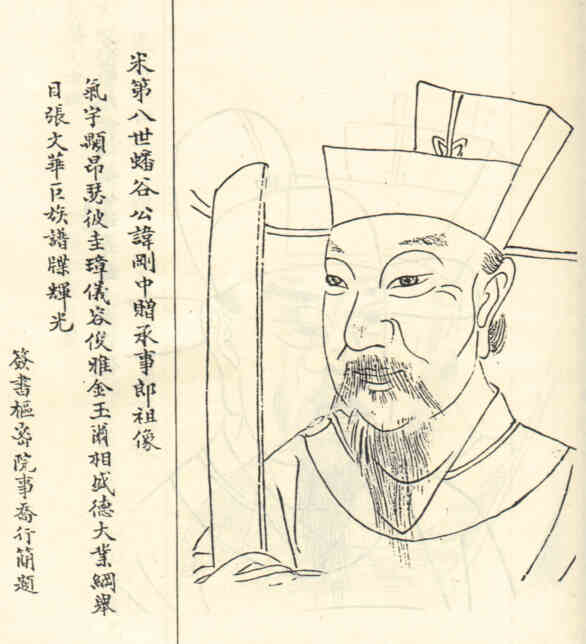 宋第八世蟠谷公諱剛中贈承事郎祖像
氣宇顒昂瑟彼圭璋儀容俊雅金玉爾相盛德大業綱舉
目張文華巨族譜牒輝光
簽書樞密院事喬行簡題